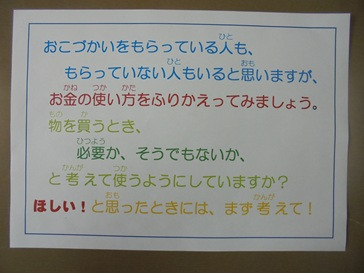 おこづかいをもらっている人も、
もらっていない人もいると思いますが、
お金の使い方をふりかえってみましょう。
物を買うとき、
必要か、そうでもないか、
と考えて使うようにしていますか？
ほしい！と思ったときには、まず考えて！